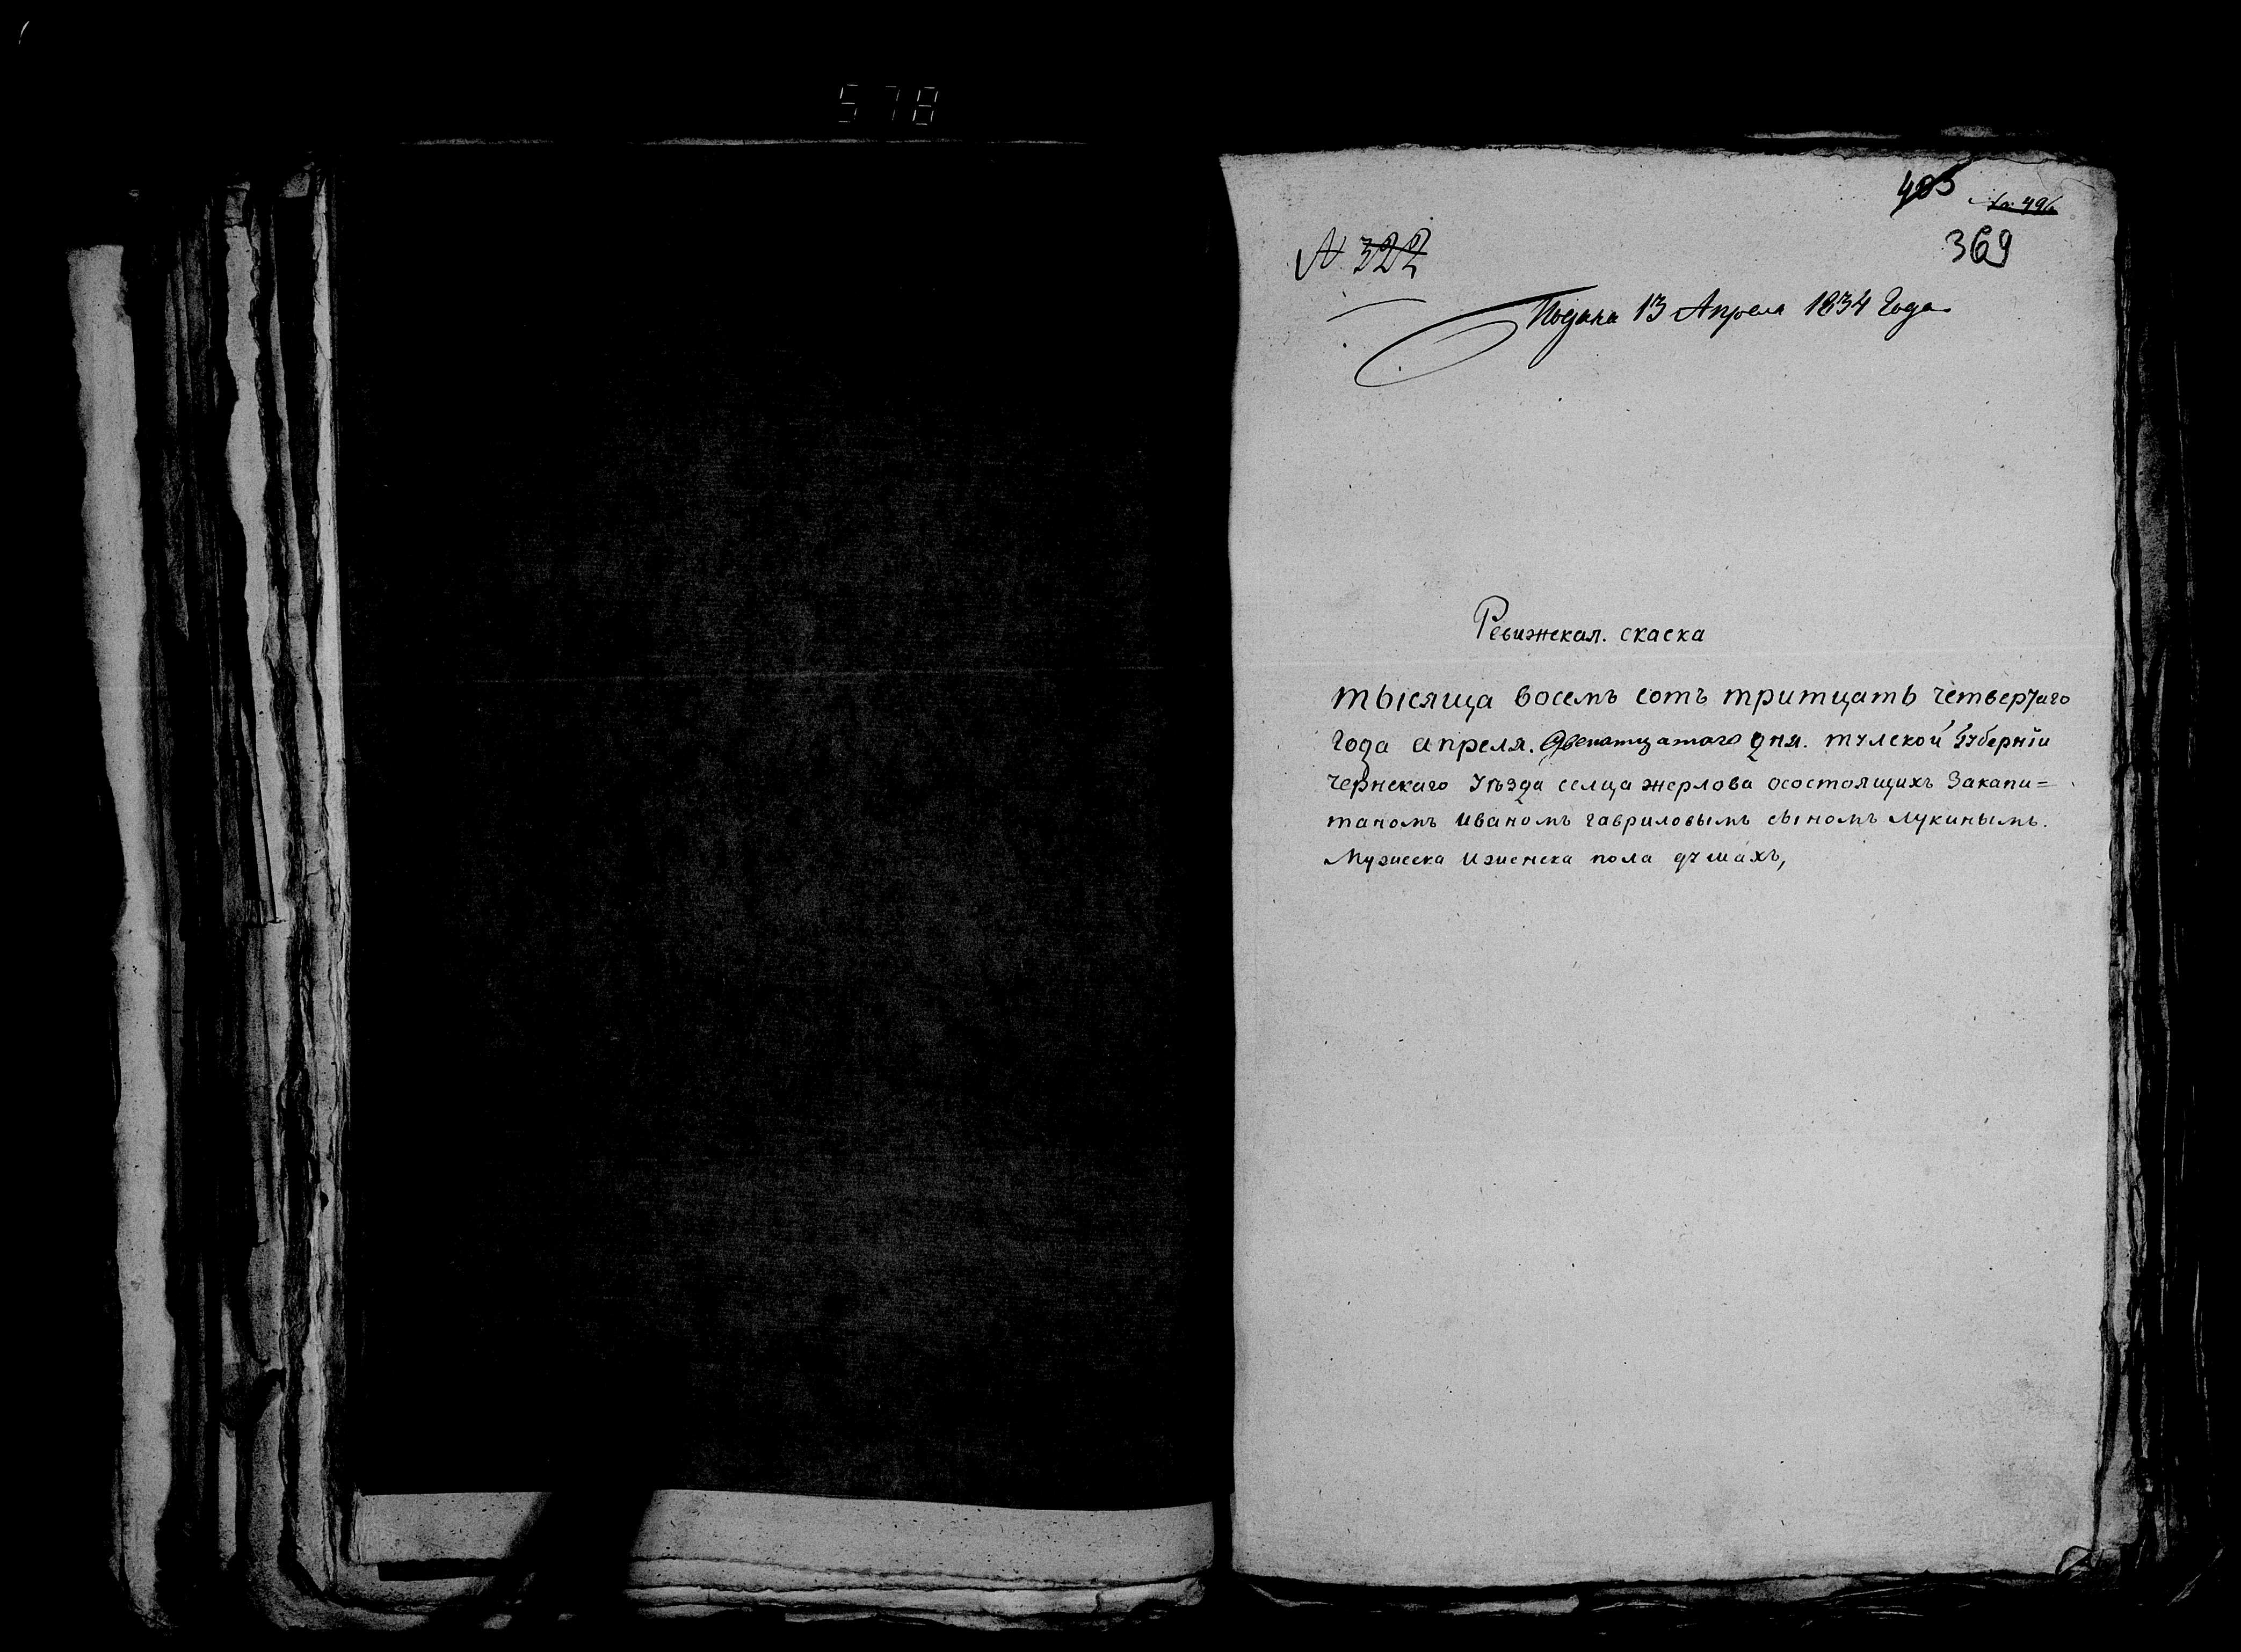 578
405
369
N 322
Подана 13 Апреля 1834 Года
Ревижская. скаска
тысяща восемъ сотъ тритцать четвертаго
Года апреля. Двенатцатого дня. тулской Губернїи
чернскаго Уѣзда селца жерлова осостоящихъ Закапи=
таномъ иваномъ гавриловымъ сыномъ лукинымъ.
Мужеска иженска пола душахъ,